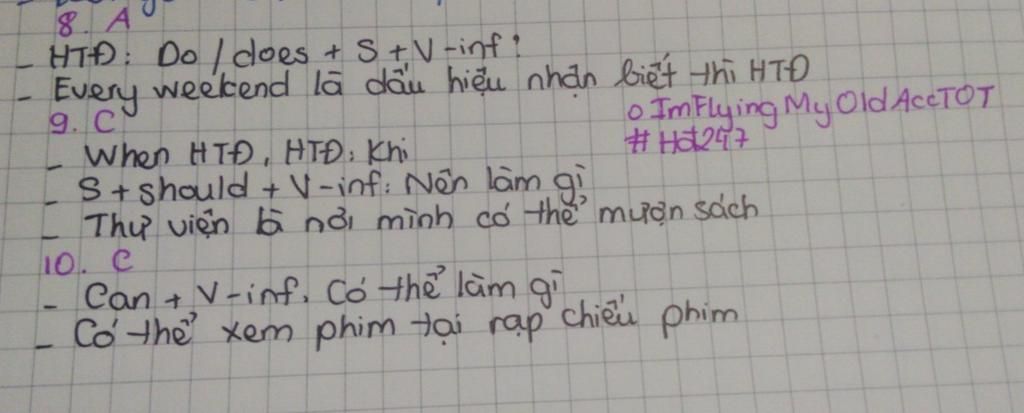 8. A
- HTĐ: Do / does + S + V-inf?
- Every weekend là dấu hiệu nhận biết thì HTĐ
o ImFlyingMyOldAccTOT
9. C
# Hd247
- When HTĐ, HTĐ: Khi
- S + should + V-inf: Nên làm gì
- Thư viện là nơi mình có thể mượn sách
10. C
- Can + V-inf. Có thể làm gì
- Có thể xem phim tại rạp chiếu phim